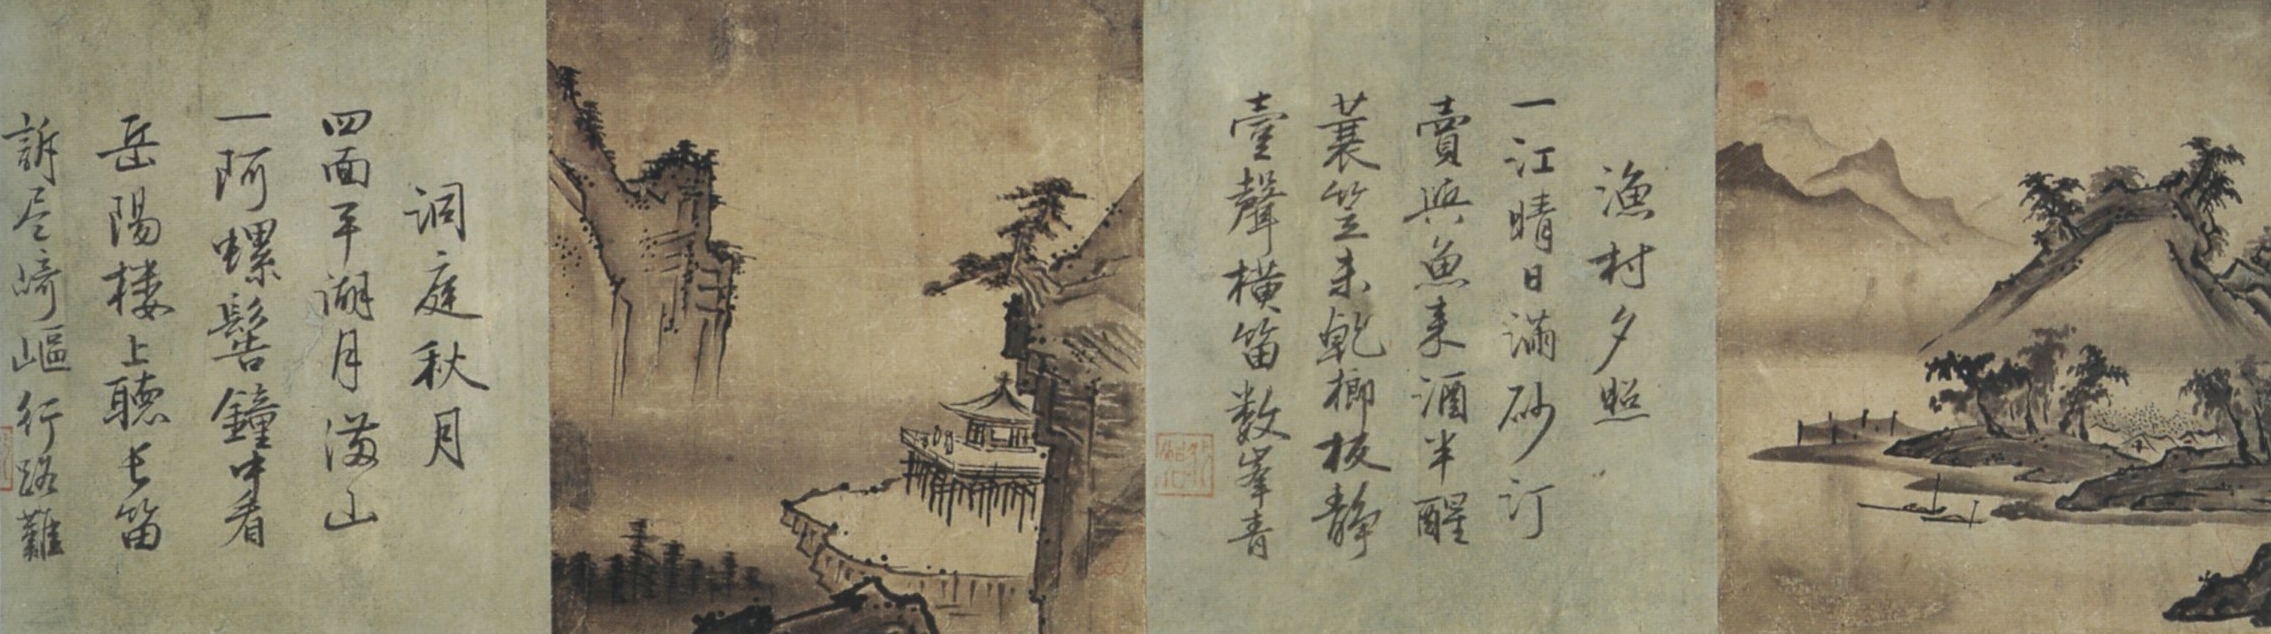 漁村夕照
一江晴日滿砂汀
賣與魚来酒半醒
蓑笠未乾榔板静
壹聲横笛数峯青
洞庭秋月
四面平湖月滿山
一阿螺髻鐘中看
岳陽楼上聴长笛
訴尽崎嶇行路難